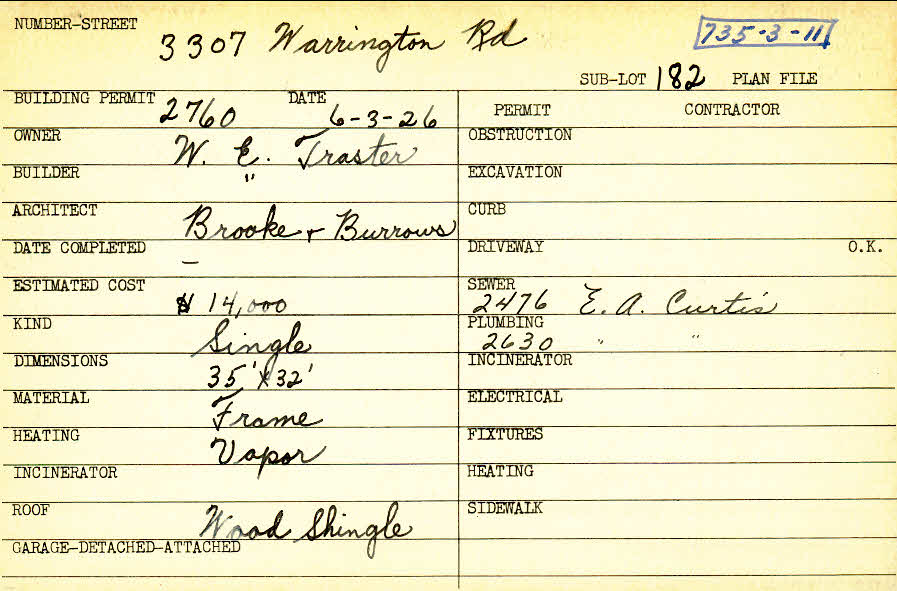 NUMBER-STREET 3307 Warrington Rd 735-3-11
SUB-LOT 182 PLAN FILE
BUILDING PERMIT 2760 DATE 6-3-26
PERMIT CONTRACTOR
OWNER W. E. Traster
OBSTRUCTION
BUILDER "
EXCAVATION
ARCHITECT Brooke + Burrows
CURB
DATE COMPLETED -
DRIVEWAY O.K.
ESTIMATED COST $ 14,000
SEWER 2476 E. A. Curtis
KIND Single
PLUMBING 2630 " "
DIMENSIONS 35' x 32'
INCINERATOR
MATERIAL Frame
ELECTRICAL
HEATING Vapor
FIXTURES
INCINERATOR
HEATING
ROOF Wood Shingle
SIDEWALK
GARAGE-DETACHED-ATTACHED